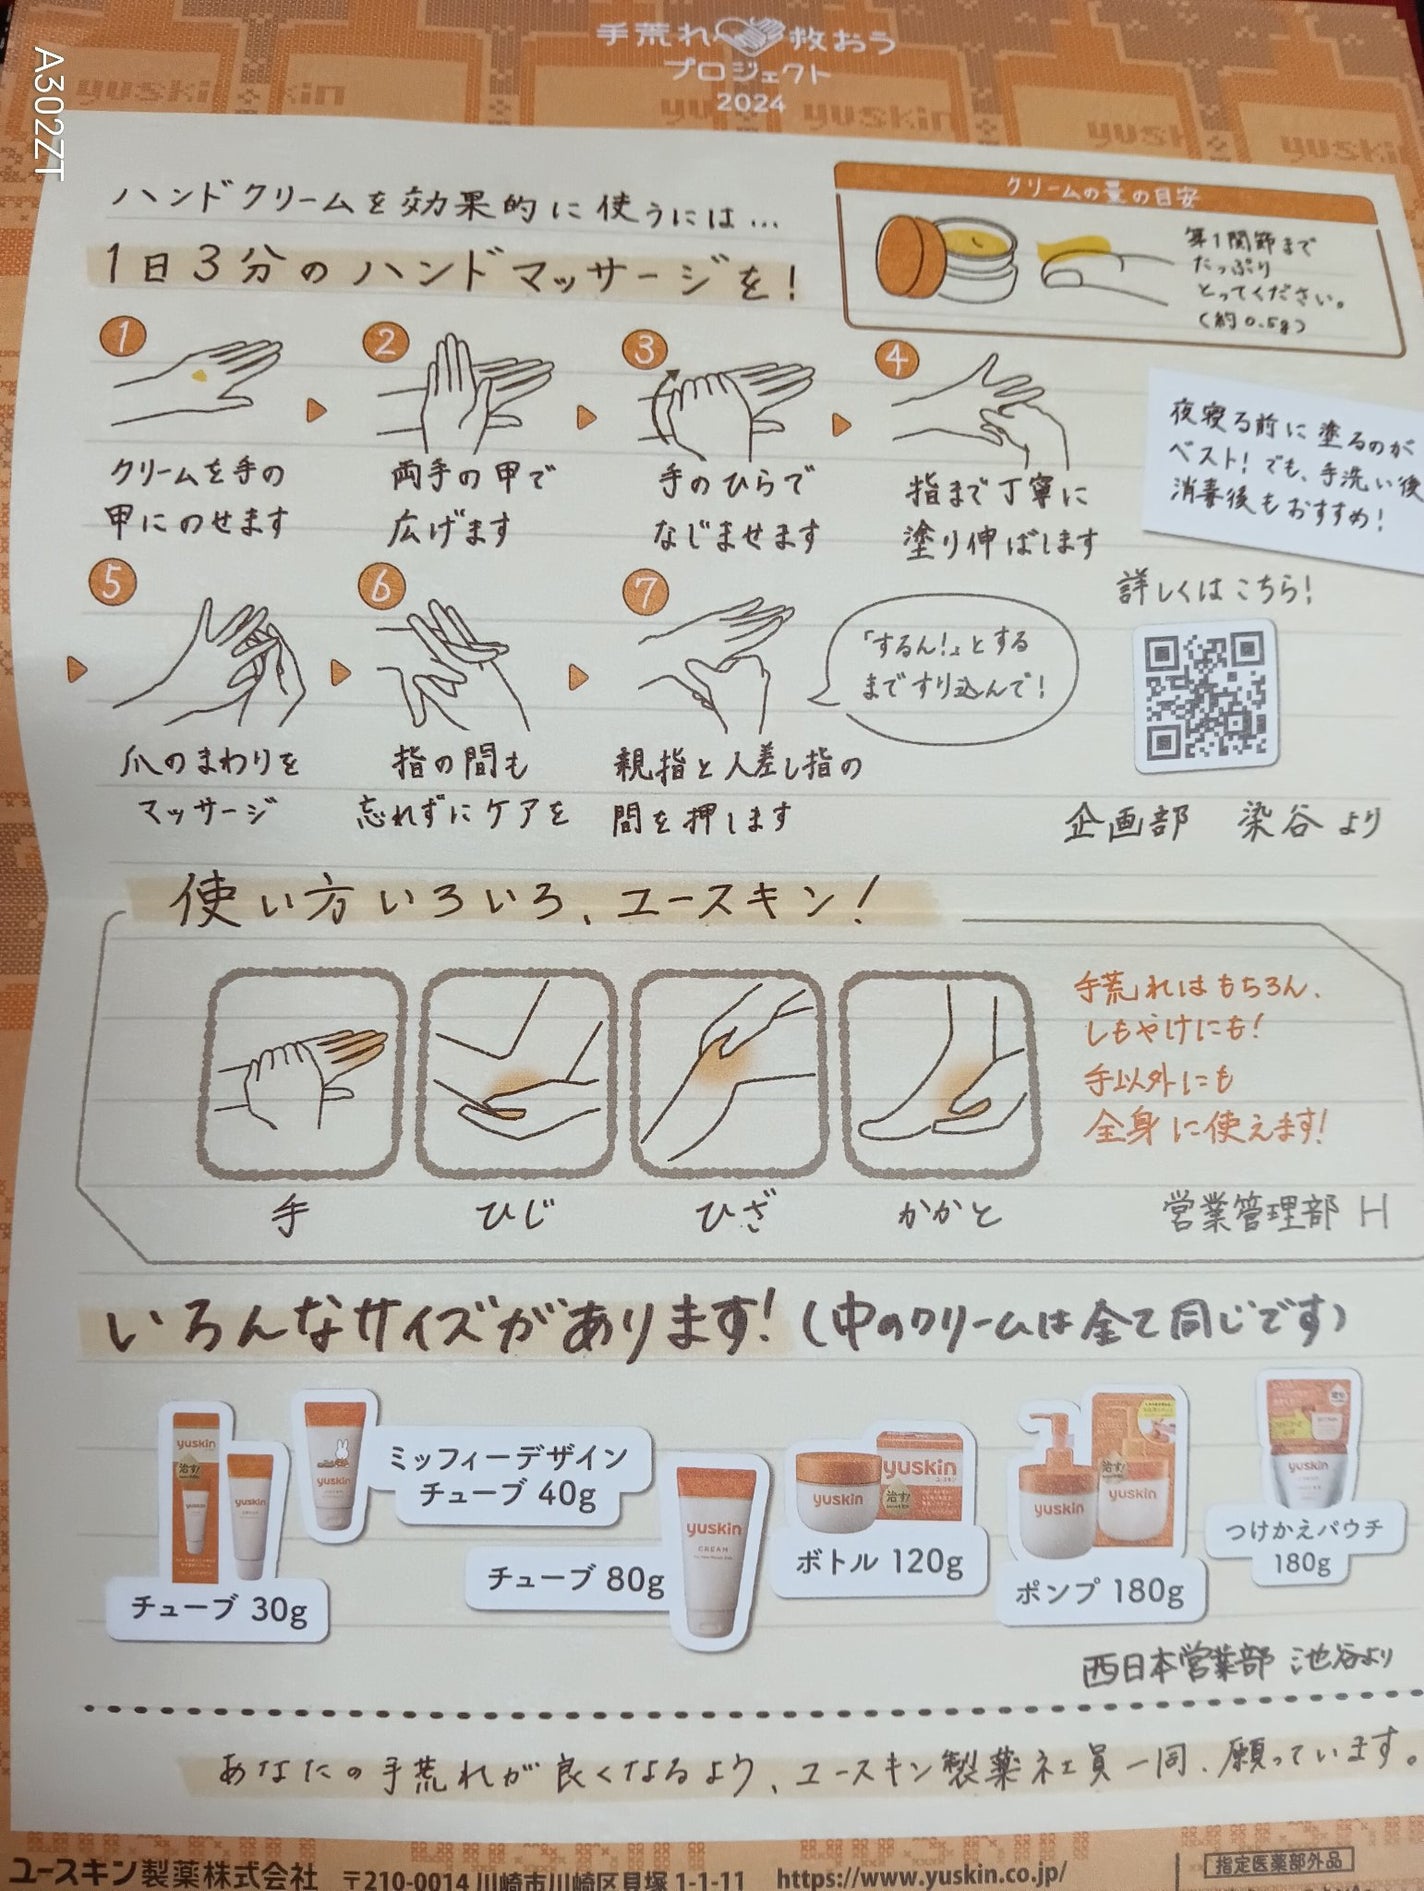 手荒れ救おう
プロジェクト
2024
A302ZT
ハンドクリームを効果的に使うには…
1日3分のハンドマッサージを!
クリームの量の目安
第1関節まで
たっぷり
とってください。
(約0.5g)
1
クリームを手の
甲にのせます
2
両手の甲で
広げます
3
手のひらで
なじませます
4
指まで丁寧に
塗り伸ばします
夜寝る前に塗るのが
ベスト!でも、手洗い後
消毒後もおすすめ!
5
爪のまわりを
マッサージ
6
指の間も
忘れずにケアを
7
親指と人差し指の
間を押します
「するん!」とする
まですり込んで!
詳しくはこちら!
企画部 染谷より
使い方いろいろ、ユースキン!
手
ひじ
ひざ
かかと
手荒れはもちろん、
しもやけにも!
手以外にも
全身に使えます!
営業管理部 H
いろんなサイズがあります!(中のクリームは全て同じです)
yuskin
治す!
yuskin
チューブ 30g
yuskin
ミッフィーデザイン
チューブ 40g
チューブ 80g
yuskin
CREAM
yuskin
yuskin
ユースキン
治す!
ボトル 120g
yuskin
治す!
yuskin
ポンプ 180g
yuskin
つけかえパウチ
180g
西日本営業部 池谷より
あなたの手荒れが良くなるよう、ユースキン製薬社員一同、願っています。
ユースキン製薬株式会社 〒210-0014 川崎市川崎区貝塚 1-1-11 https://www.yuskin.co.jp/
指定医薬部外品